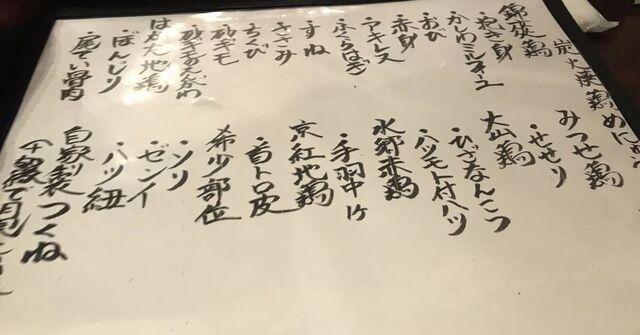 炭火焼鶏めにゅ
錦爽鶏
・抱き身
・かしわミルフィーユ
・おび
・赤身
・アキレス
・ふくらはぎ
・すね
・ささみ
・砂ギモ
・砂ギモのえんがわ
はかた地鶏
・ぼんじり
・尾てい骨肉
みつせ鶏
・せせり
大山鶏
・ひざなんこつ
・ハツモト付ハツ
水郷赤鶏
・手羽中1ケ
京紅地鶏
・首トロ皮
希少部位
・ソリ
・ゼンイ
・ハツ紐
自家製つくね
で月見